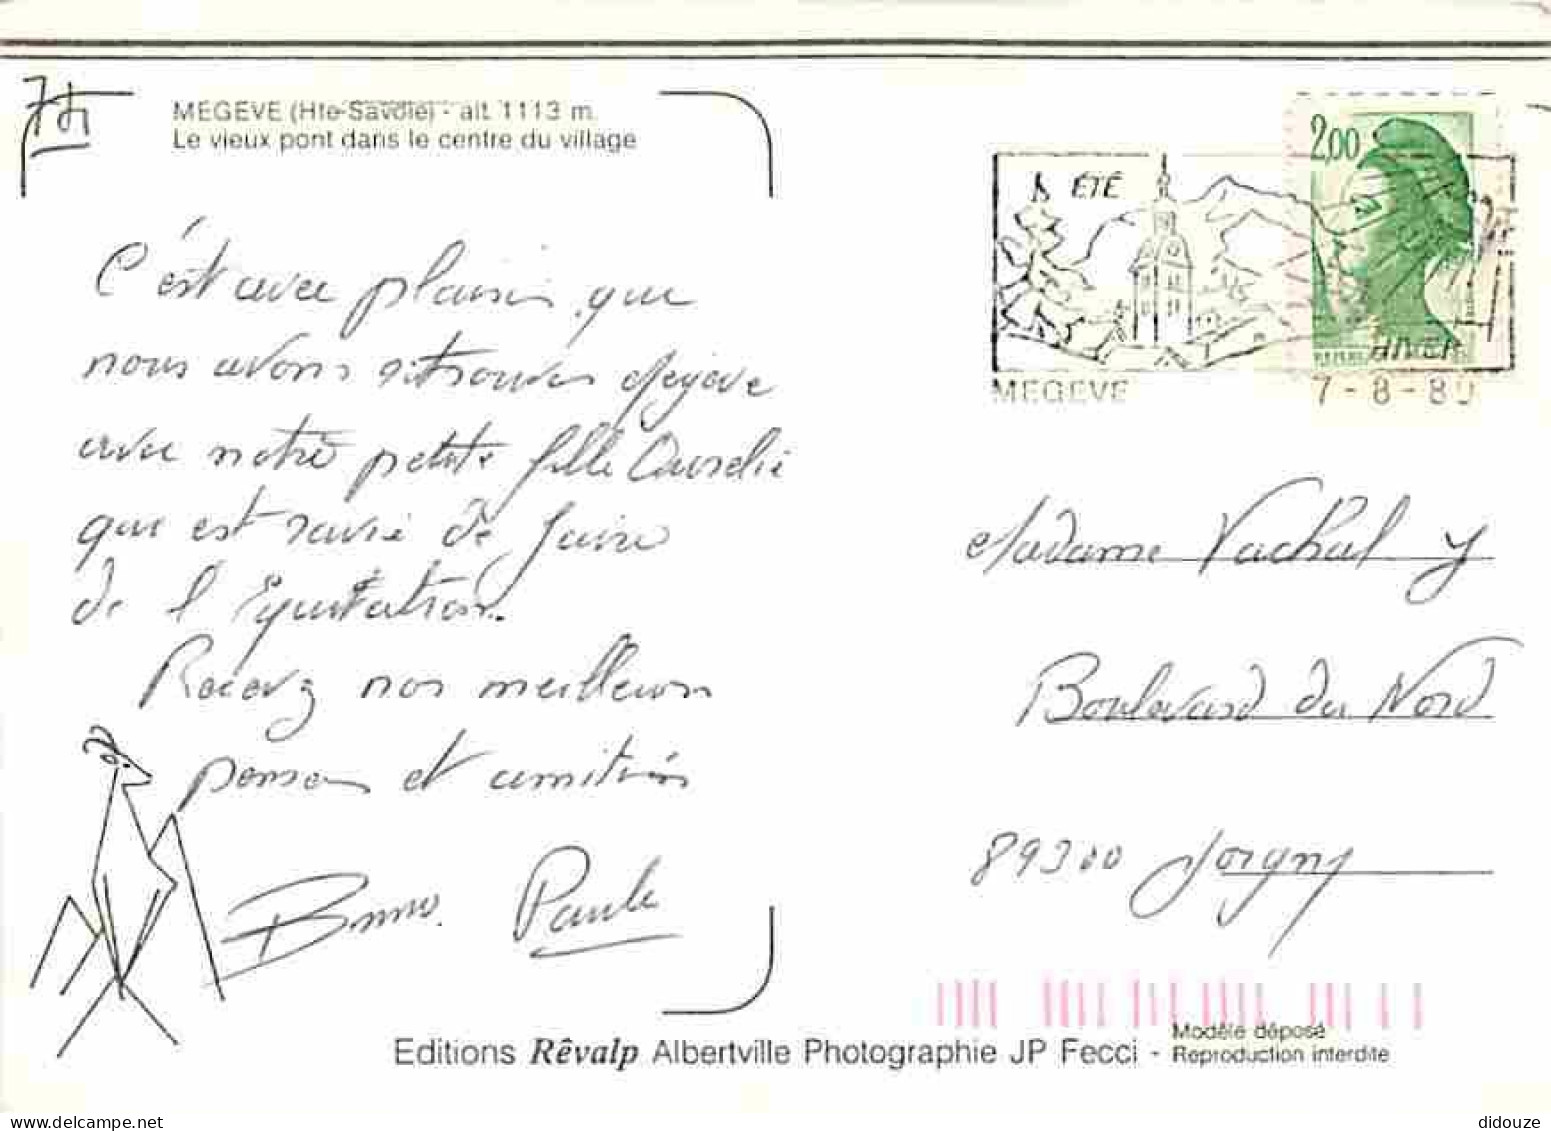 MEGEVE (Hte-Savoie) - alt. 1113 m.
Le vieux pont dans le centre du village
2,00
ÉTÉ
HIVER
MEGEVE
7-8-89
C'est avec plaisir que
nous avons retrouvés Megève
avec notre petite fille Aurelie
qui est ravie de faire
de l'Equitation.
Recevez nos meilleurs
pensées et amitiés
Bruno. Paule
Madame Vachal y
Boulevard du Nord
89300 Joigny
Editions Rêvalp Albertville Photographie JP Fecci -
Modèle déposé
Reproduction interdite
didouze